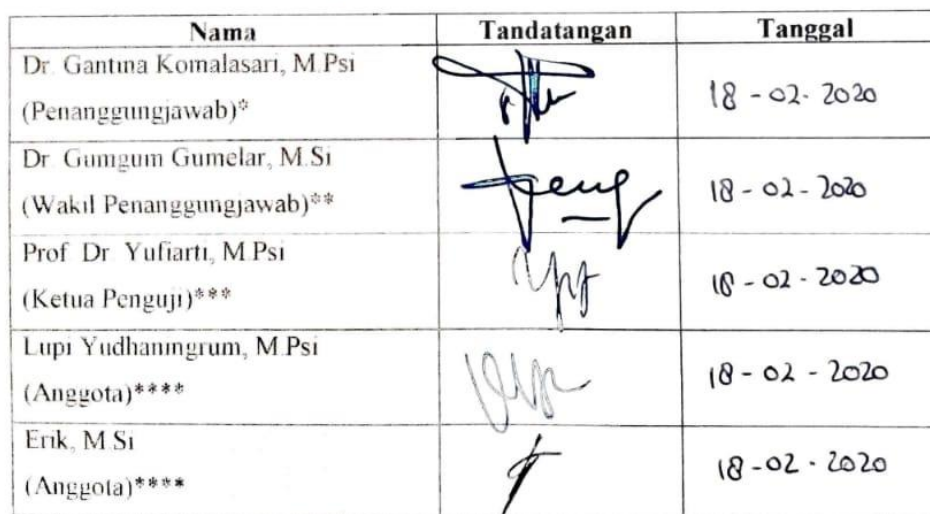 Nama Tandatangan Tanggal
Dr. Gantina Komalasari, M.Psi
(Penanggungjawab)* 18 - 02 - 2020
Dr. Gumgum Gumelar, M.Si
(Wakil Penanggungjawab)** 18 - 02 - 2020
Prof. Dr. Yufiarti, M.Psi
(Ketua Penguji)*** 18 - 02 - 2020
Lupi Yudhaningrum, M.Psi
(Anggota)**** 18 - 02 - 2020
Erik, M.Si
(Anggota)**** 18 - 02 - 2020